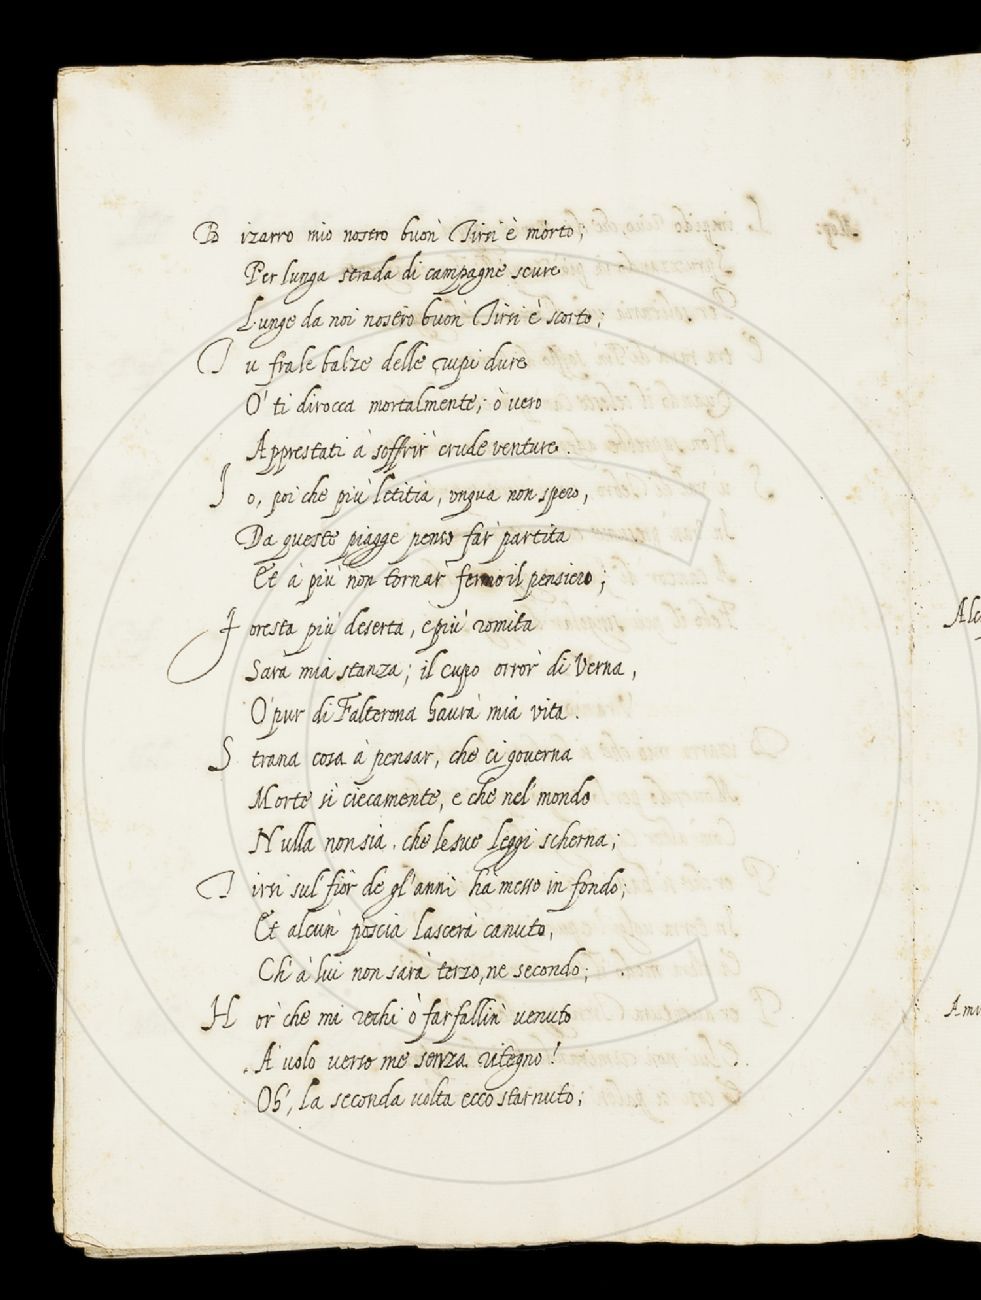 Bizarro mio nostro buon' Tirsi è morto;
Per lunga strada di campagne scure
Lunge da noi nostro buon' Tirsi è scorto;
Tu fra le balze delle rupi dure
O' ti dirocca mortalmente; ò vero
Apprestati à soffrir' crude venture.
Io, poi che più letitia, vnqua non spero,
Da queste piagge penso far' partita
Et à più non tornar' fermo il pensiero;
Foresta più deserta, e più romita
Sarà mia stanza; il cupo orror' di Verna,
O' pur di Falterona haurà mia vita.
Strana cosa à pensar, che ci governa
Morte sì ciecamente, e che nel' mondo
Nulla non sia, che le sue leggi scherna;
Tirsi sul fior' de gl'anni ha messo in fondo;
Et alcun' poscia lascerà canuto,
Ch' à lui non sarà terzo, ne secondo;
Hor' che mi rechi ò farfallin' venuto
A' volo verso me senza ritegno!
Oh', la seconda volta ecco starnuto;